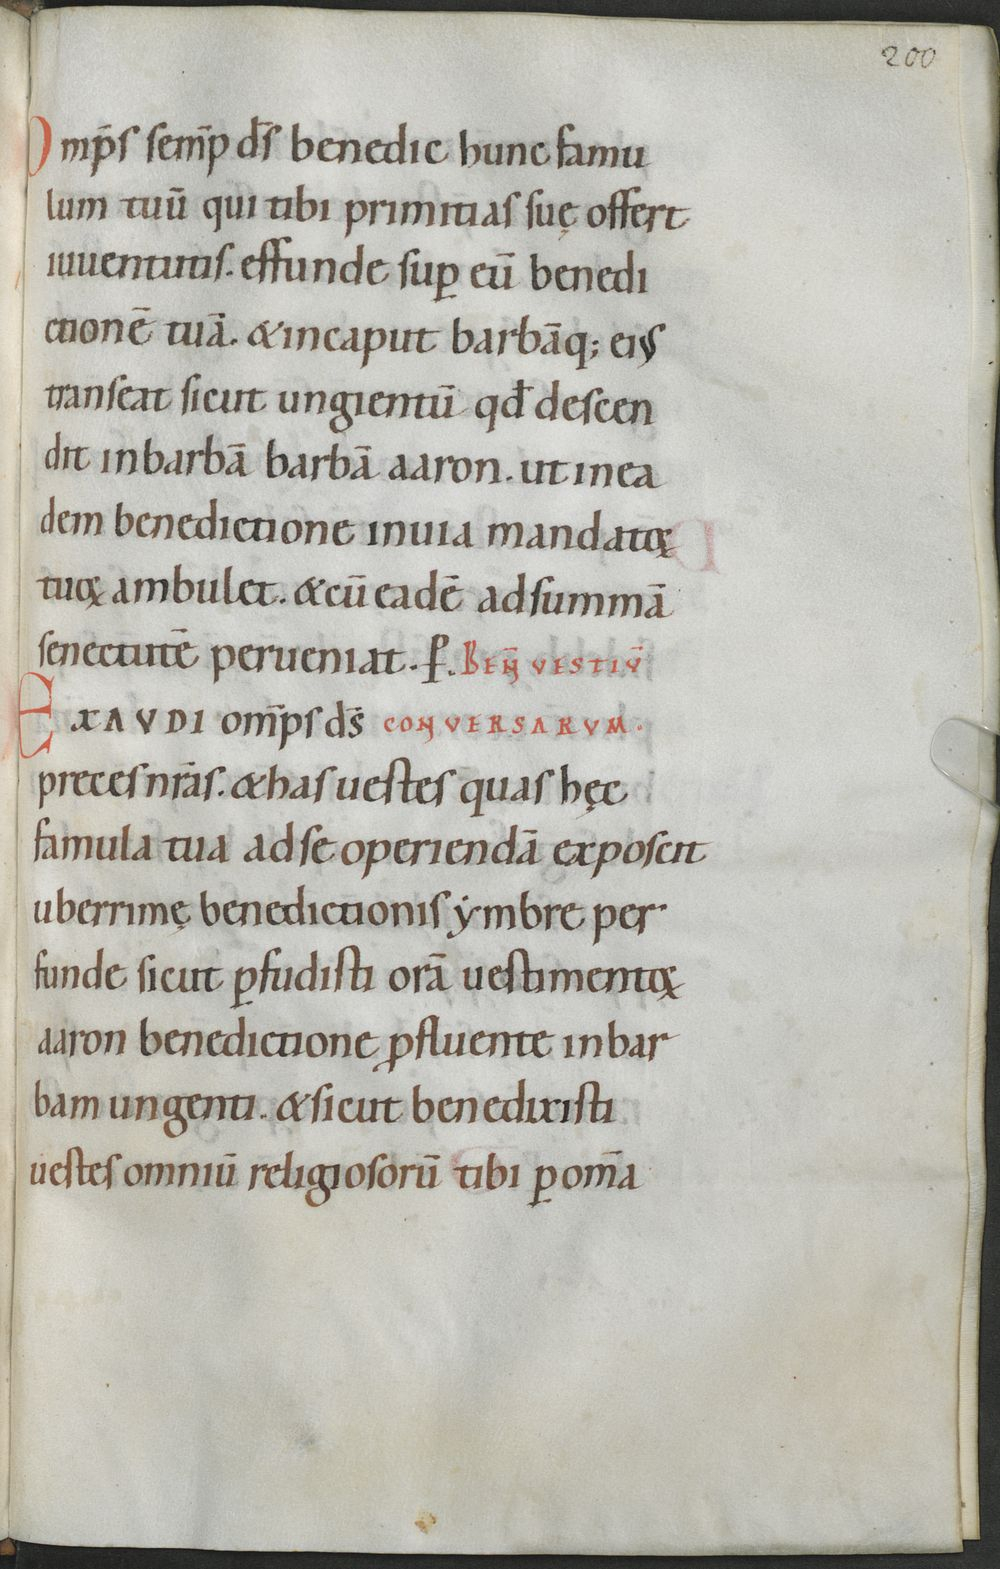 200
Omp̄s semp̄ ds̄ benedic hunc famu
lum tuū qui tibi primitias suę offert
iuuentutis. effunde suꝑ eū benedi
ctionē tuā. & in caput barbāq; eiꝰ
transeat sicut ungientū qd̄ descen
dit in barbā barbā aaron. ut in ea
dem benedictione in uia mandatoꝝ
tuoꝝ ambulet. & cū eadē ad summā
senectutē perueniat. ꝑ. BEN̄ VESTIV̄
EXAVDI om̄ps ds̄ CONVERSARVM.
preces nr̄as. & has uestes quas hęc
famula tua ad se operiendā exposcit
uberrimę benedictionis ẏmbre per
funde sicut ꝑfudisti orā uestimentoꝝ
aaron benedictione ꝓfluente in bar
bam ungenti. & sicut benedixisti
uestes omniū religiosorū tibi ꝑ om̄a